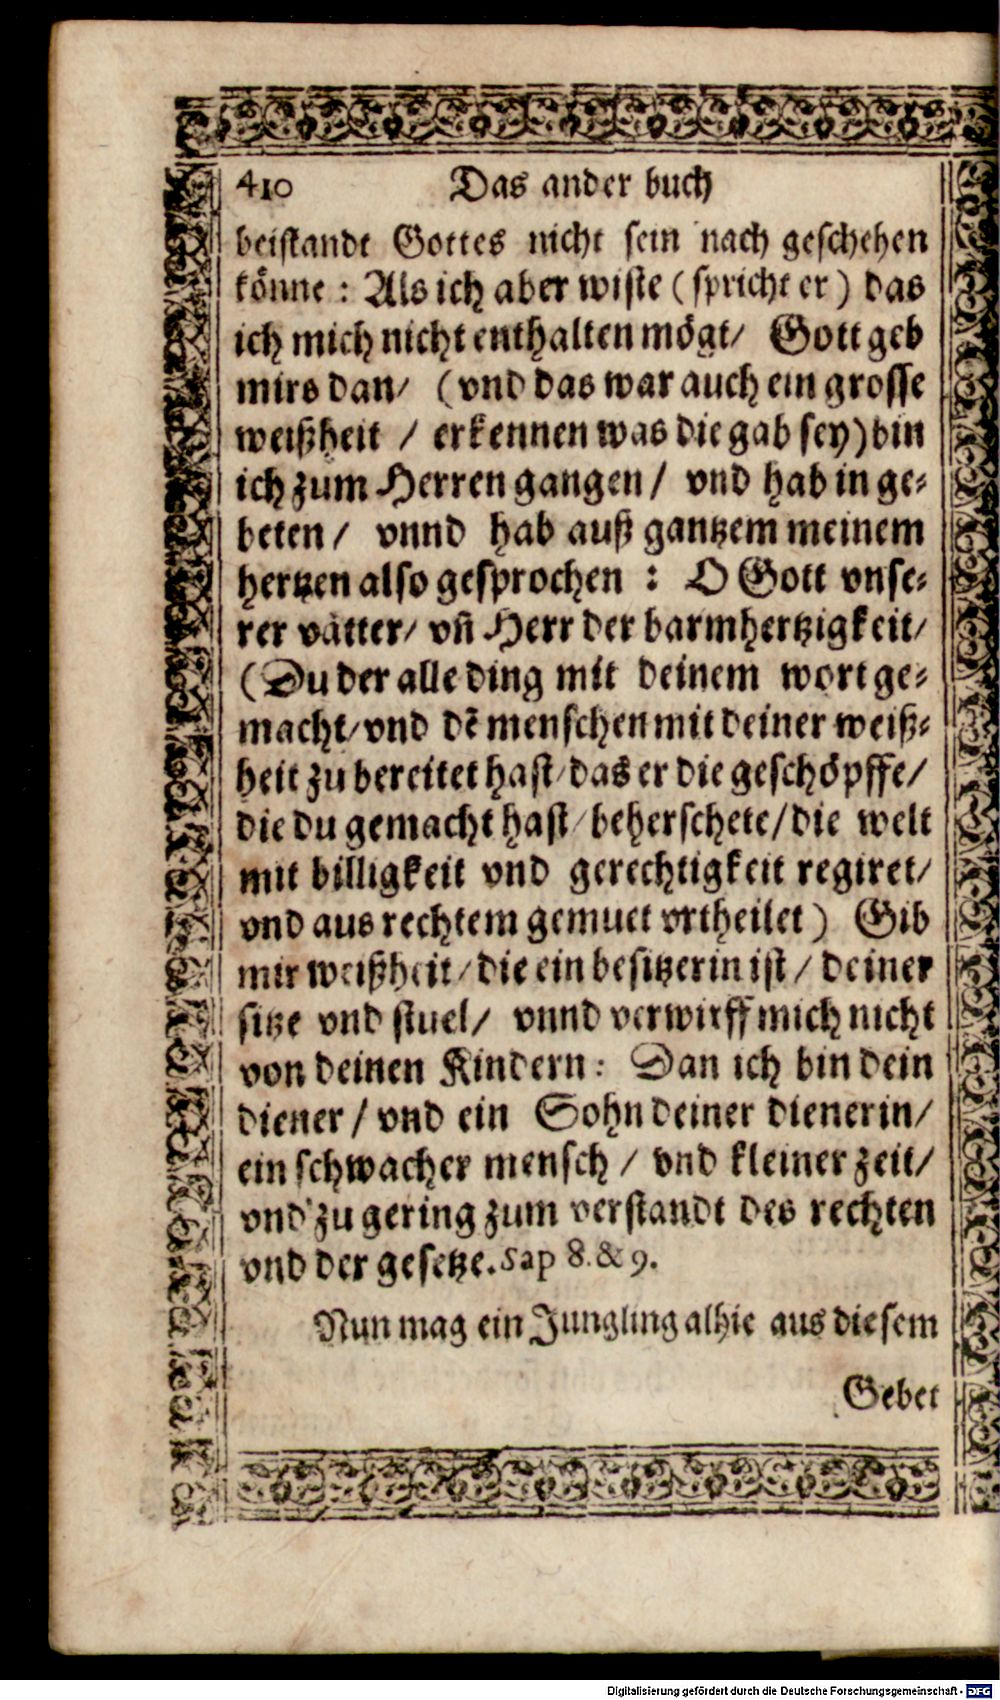 410 Das ander buch
beistandt Gottes nicht sein nach geschehen
könne : Als ich aber wiste ( spricht er ) das
ich mich nicht enthalten mögt/ Gott geb
mirs dan/ (vnd das war auch ein grosse
weißheit / erkennen was die gab sey) bin
ich zum Herren gangen / vnd hab in ge-
beten / vnnd hab auß gantzem meinem
hertzen also gesprochen : O Gott vnse-
rer vätter/ vn̄ Herr der barmhertzigkeit/
(Du der alle ding mit deinem wort ge-
macht/ vnd dē menschen mit deiner weiß-
heit zu bereitet hast/ das er die geschöpffe/
die du gemacht hast/ beherschete/ die welt
mit billigkeit vnd gerechtigkeit regiret/
vnd aus rechtem gemuet vrtheilet) Gib
mir weißheit/ die ein besitzerin ist / deiner
sitze vnd stuel/ vnnd verwirff mich nicht
von deinen Kindern: Dan ich bin dein
diener / vnd ein Sohn deiner dienerin/
ein schwacher mensch / vnd kleiner zeit/
vnd zu gering zum verstandt des rechten
vnd der gesetze. Sap 8. & 9.
Nun mag ein Jungling alhie aus diesem
Gebet
Digitalisierung gefördert durch die Deutsche Forschungsgemeinschaft - DFG